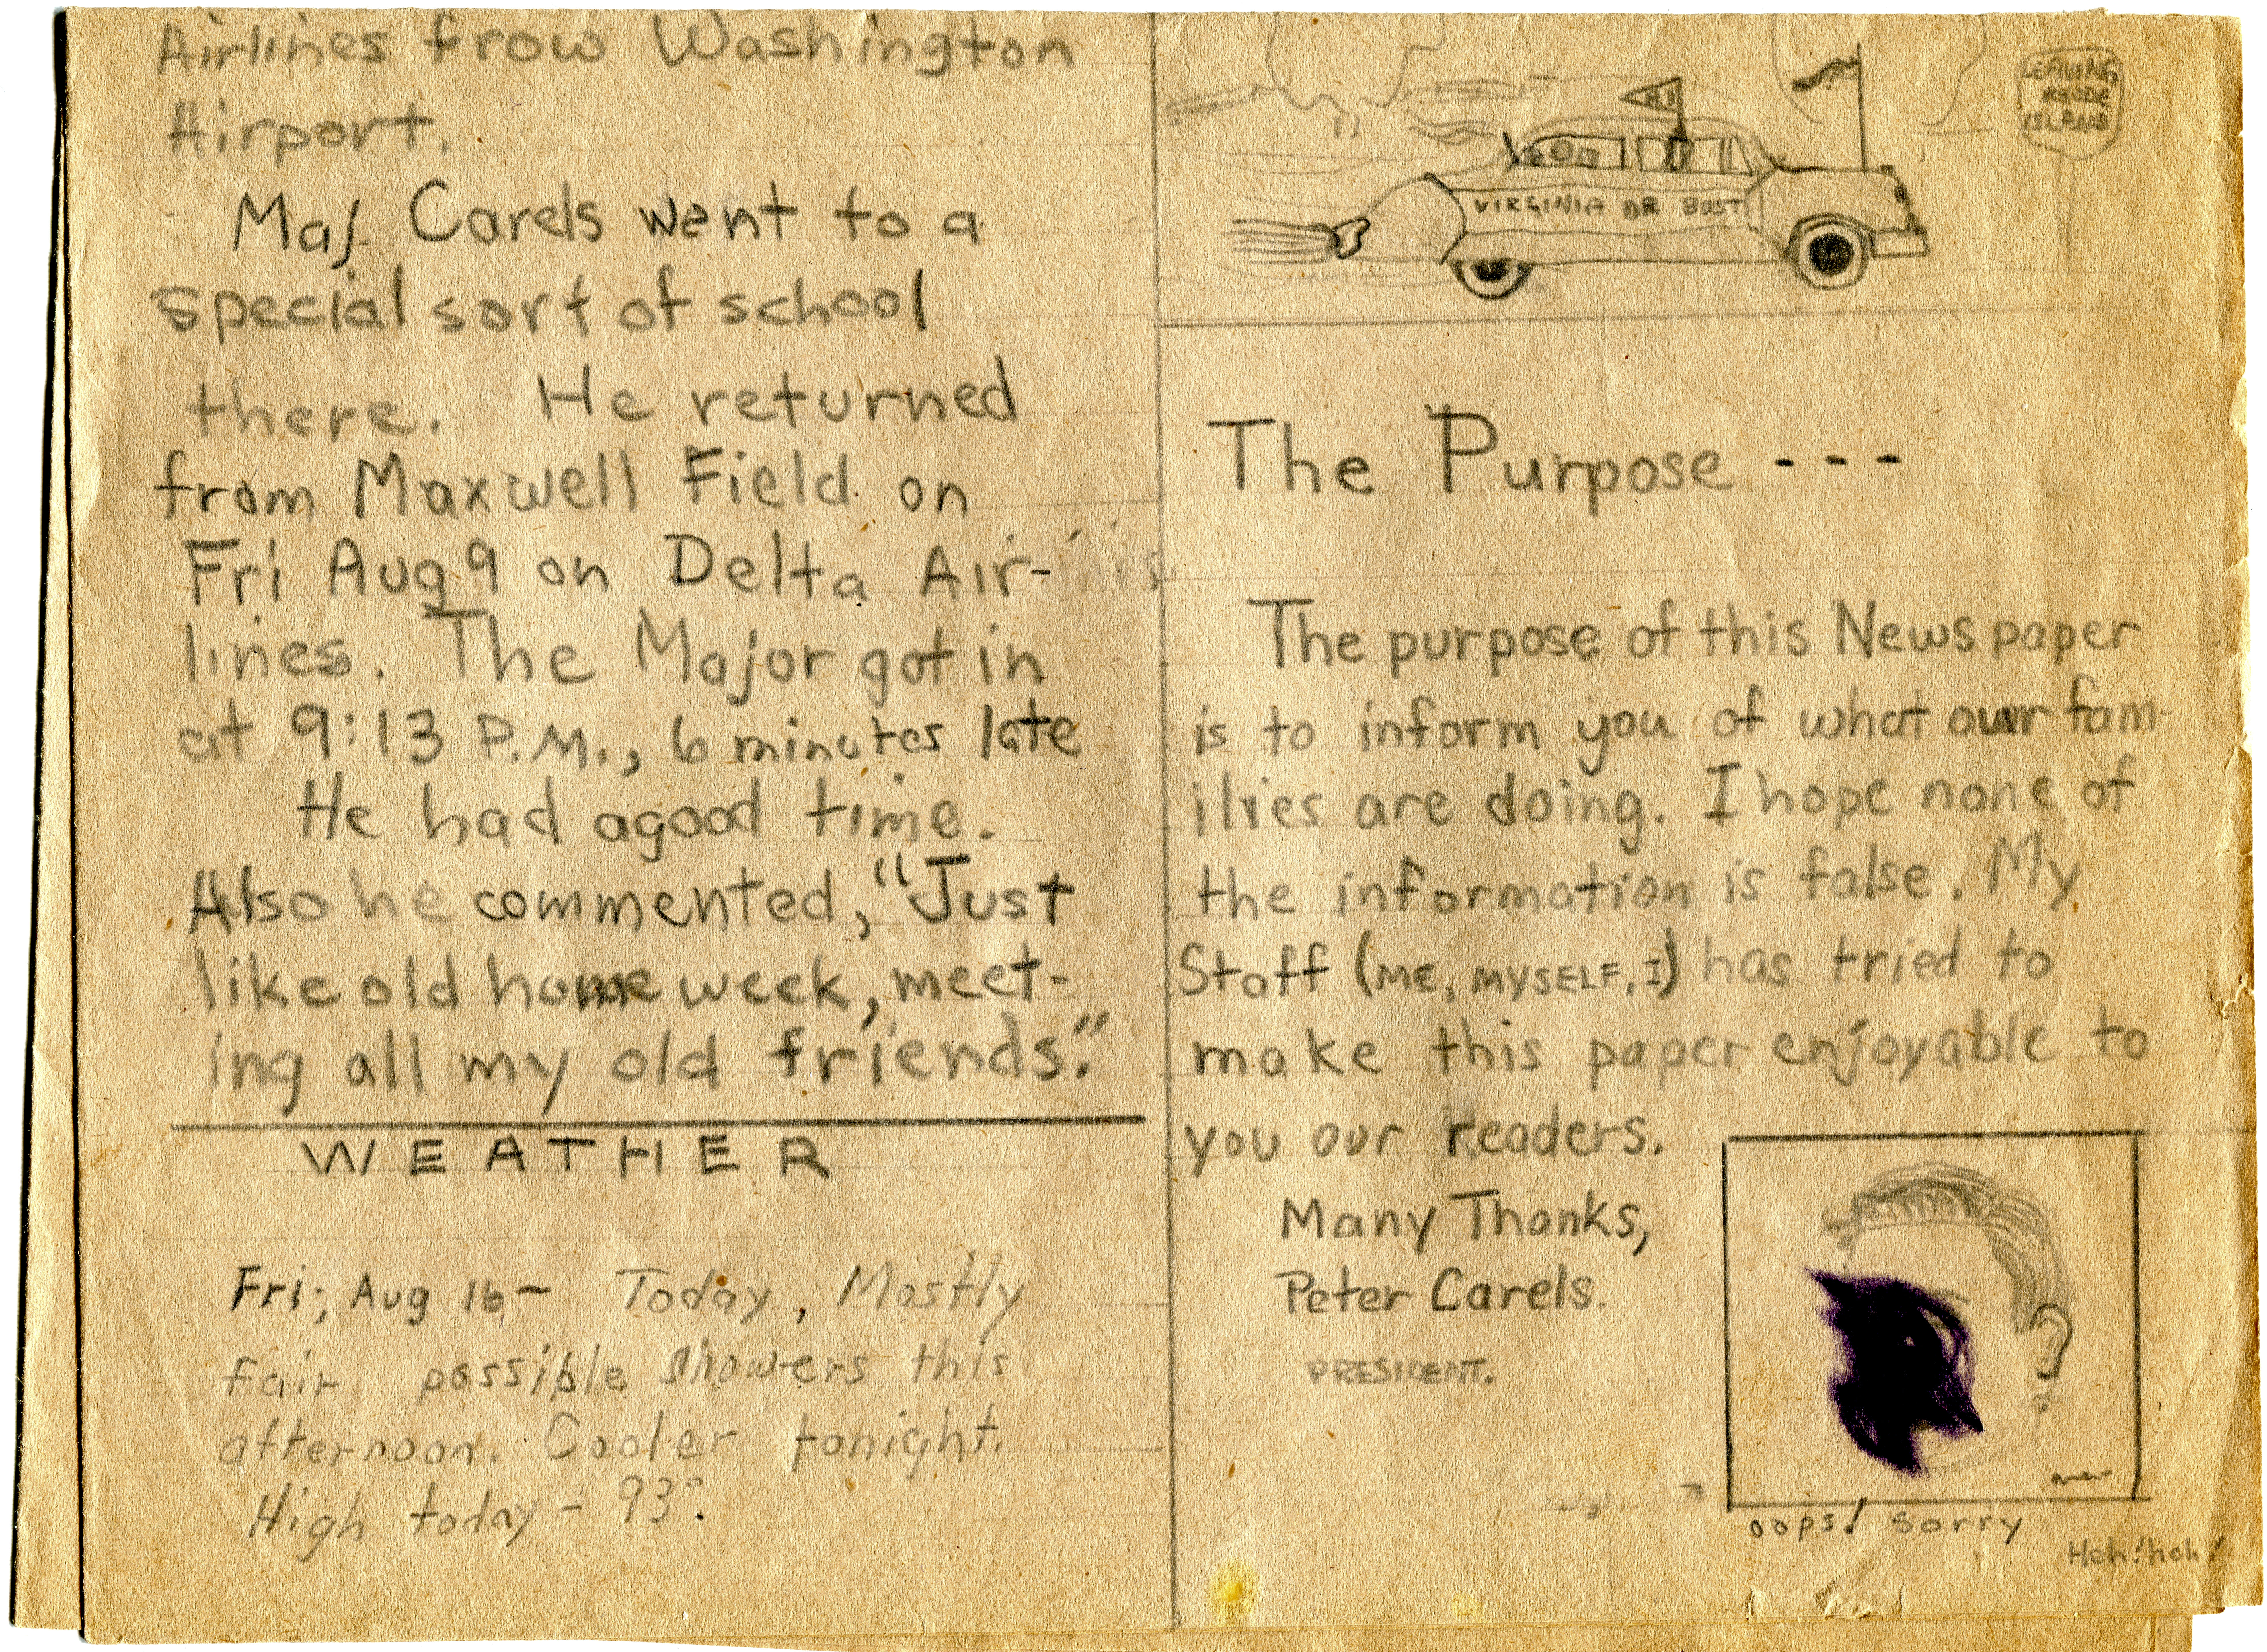 Airlines frow Washington
Airport.
Maj. Carels went to a
special sort of school
there. He returned
from Maxwell Field on
Fri Aug 9 on Delta Air-
lines. The Major got in
at 9:13 P.M., 6 minutes late
He had agood time.
Also he commented, "Just
like old home week, meet-
ing all my old friends."
WEATHER
Fri; Aug 16- Today, Mostly
fair, possible showers this
afternoon. Cooler tonight.
High today - 93°.
RI
LEAVING
RHODE
ISLAND
VIRGINIA OR BUST
The Purpose ---
The purpose of this News paper
is to inform you of what our fam-
ilies are doing. I hope none of
the information is false. My
Staff (ME, MYSELF, I) has tried to
make this paper enjoyable to
you our readers.
Many Thanks,
Peter Carels.
PRESIDENT.
oops! sorry
Heh! heh!